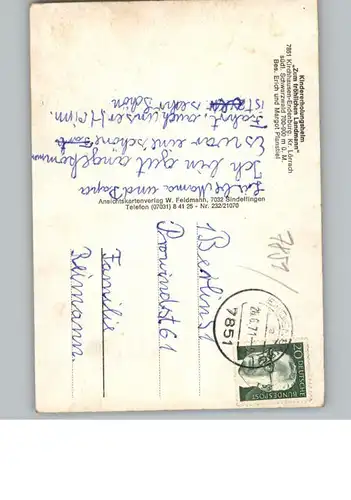 Kindererholungsheim
"Zum fröhlichen Landmann"
7861 Kirchhausen-Endenburg, Kr. Lörrach
südl. Schwarzwald 700-900 m ü. M.
Bes. Erich und Margot Planstiel
Liebe Mama und Papa
Ich bin gut angekommen
Es war eine schöne
Fahrt, auch unser Heim.
ist sehr schön
Ansichtskartenverlag W. Feldmann, 7032 Sindelfingen
Telefon (07031) 8 41 25 - Nr. 232/21070
Familie
Reimann
1 Berlin 61
7851
26.6.71
7851
20
DEUTSCHE
BUNDESPOST